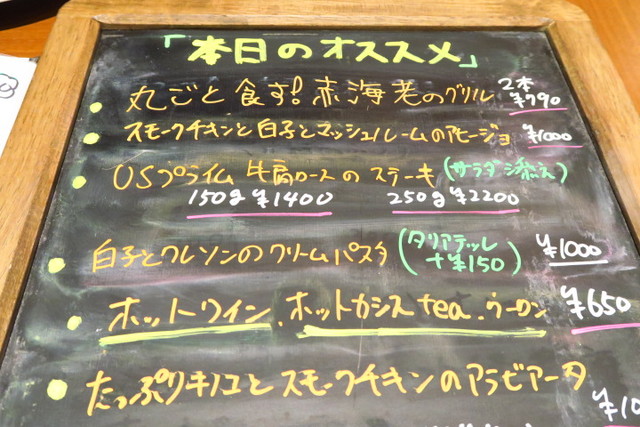 「本日のオススメ」
丸ごと食す!赤海老のグリル 2本 ¥790
スモークチキンと白子とマッシュルームのアモージョ ¥1000
USプライム 牛肩ロースのステーキ (サラダ添え)
150g ¥1400 250g ¥2200
白子とクレソンのクリームパスタ (タリアテッレ +¥150) ¥1000
ホットワイン.ホットカシス tea.ウーロン ¥650
たっぷりキノコとスモークチキンのアラビアータ